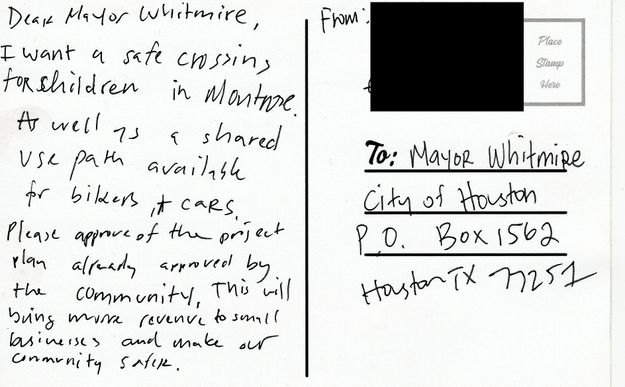 Dear Mayor Whitmire,
I want a safe crossing
for children in Montrose.
As well as a shared
use path available
for bikers, & cars.
Please approve of the project
plan already approved by
the community. This will
bring more revenue to small
businesses and make our
community safer.
From:
Place
Stamp
Here
To: Mayor Whitmire
City of Houston
P.O. Box 1562
Houston TX 77251